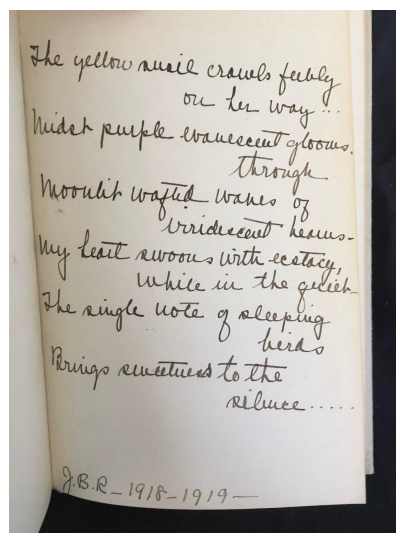 The yellow snail crawls feebly
on her way....
Midst purple evanescent glooms.
through
Moonlit wafted waves of
irridescent beams-
My heart swoons with ecstacy,
While in the quiet-
The single note of sleeping
birds
Brings sweetness to the
silence.....
J.B.R_1918-1919-